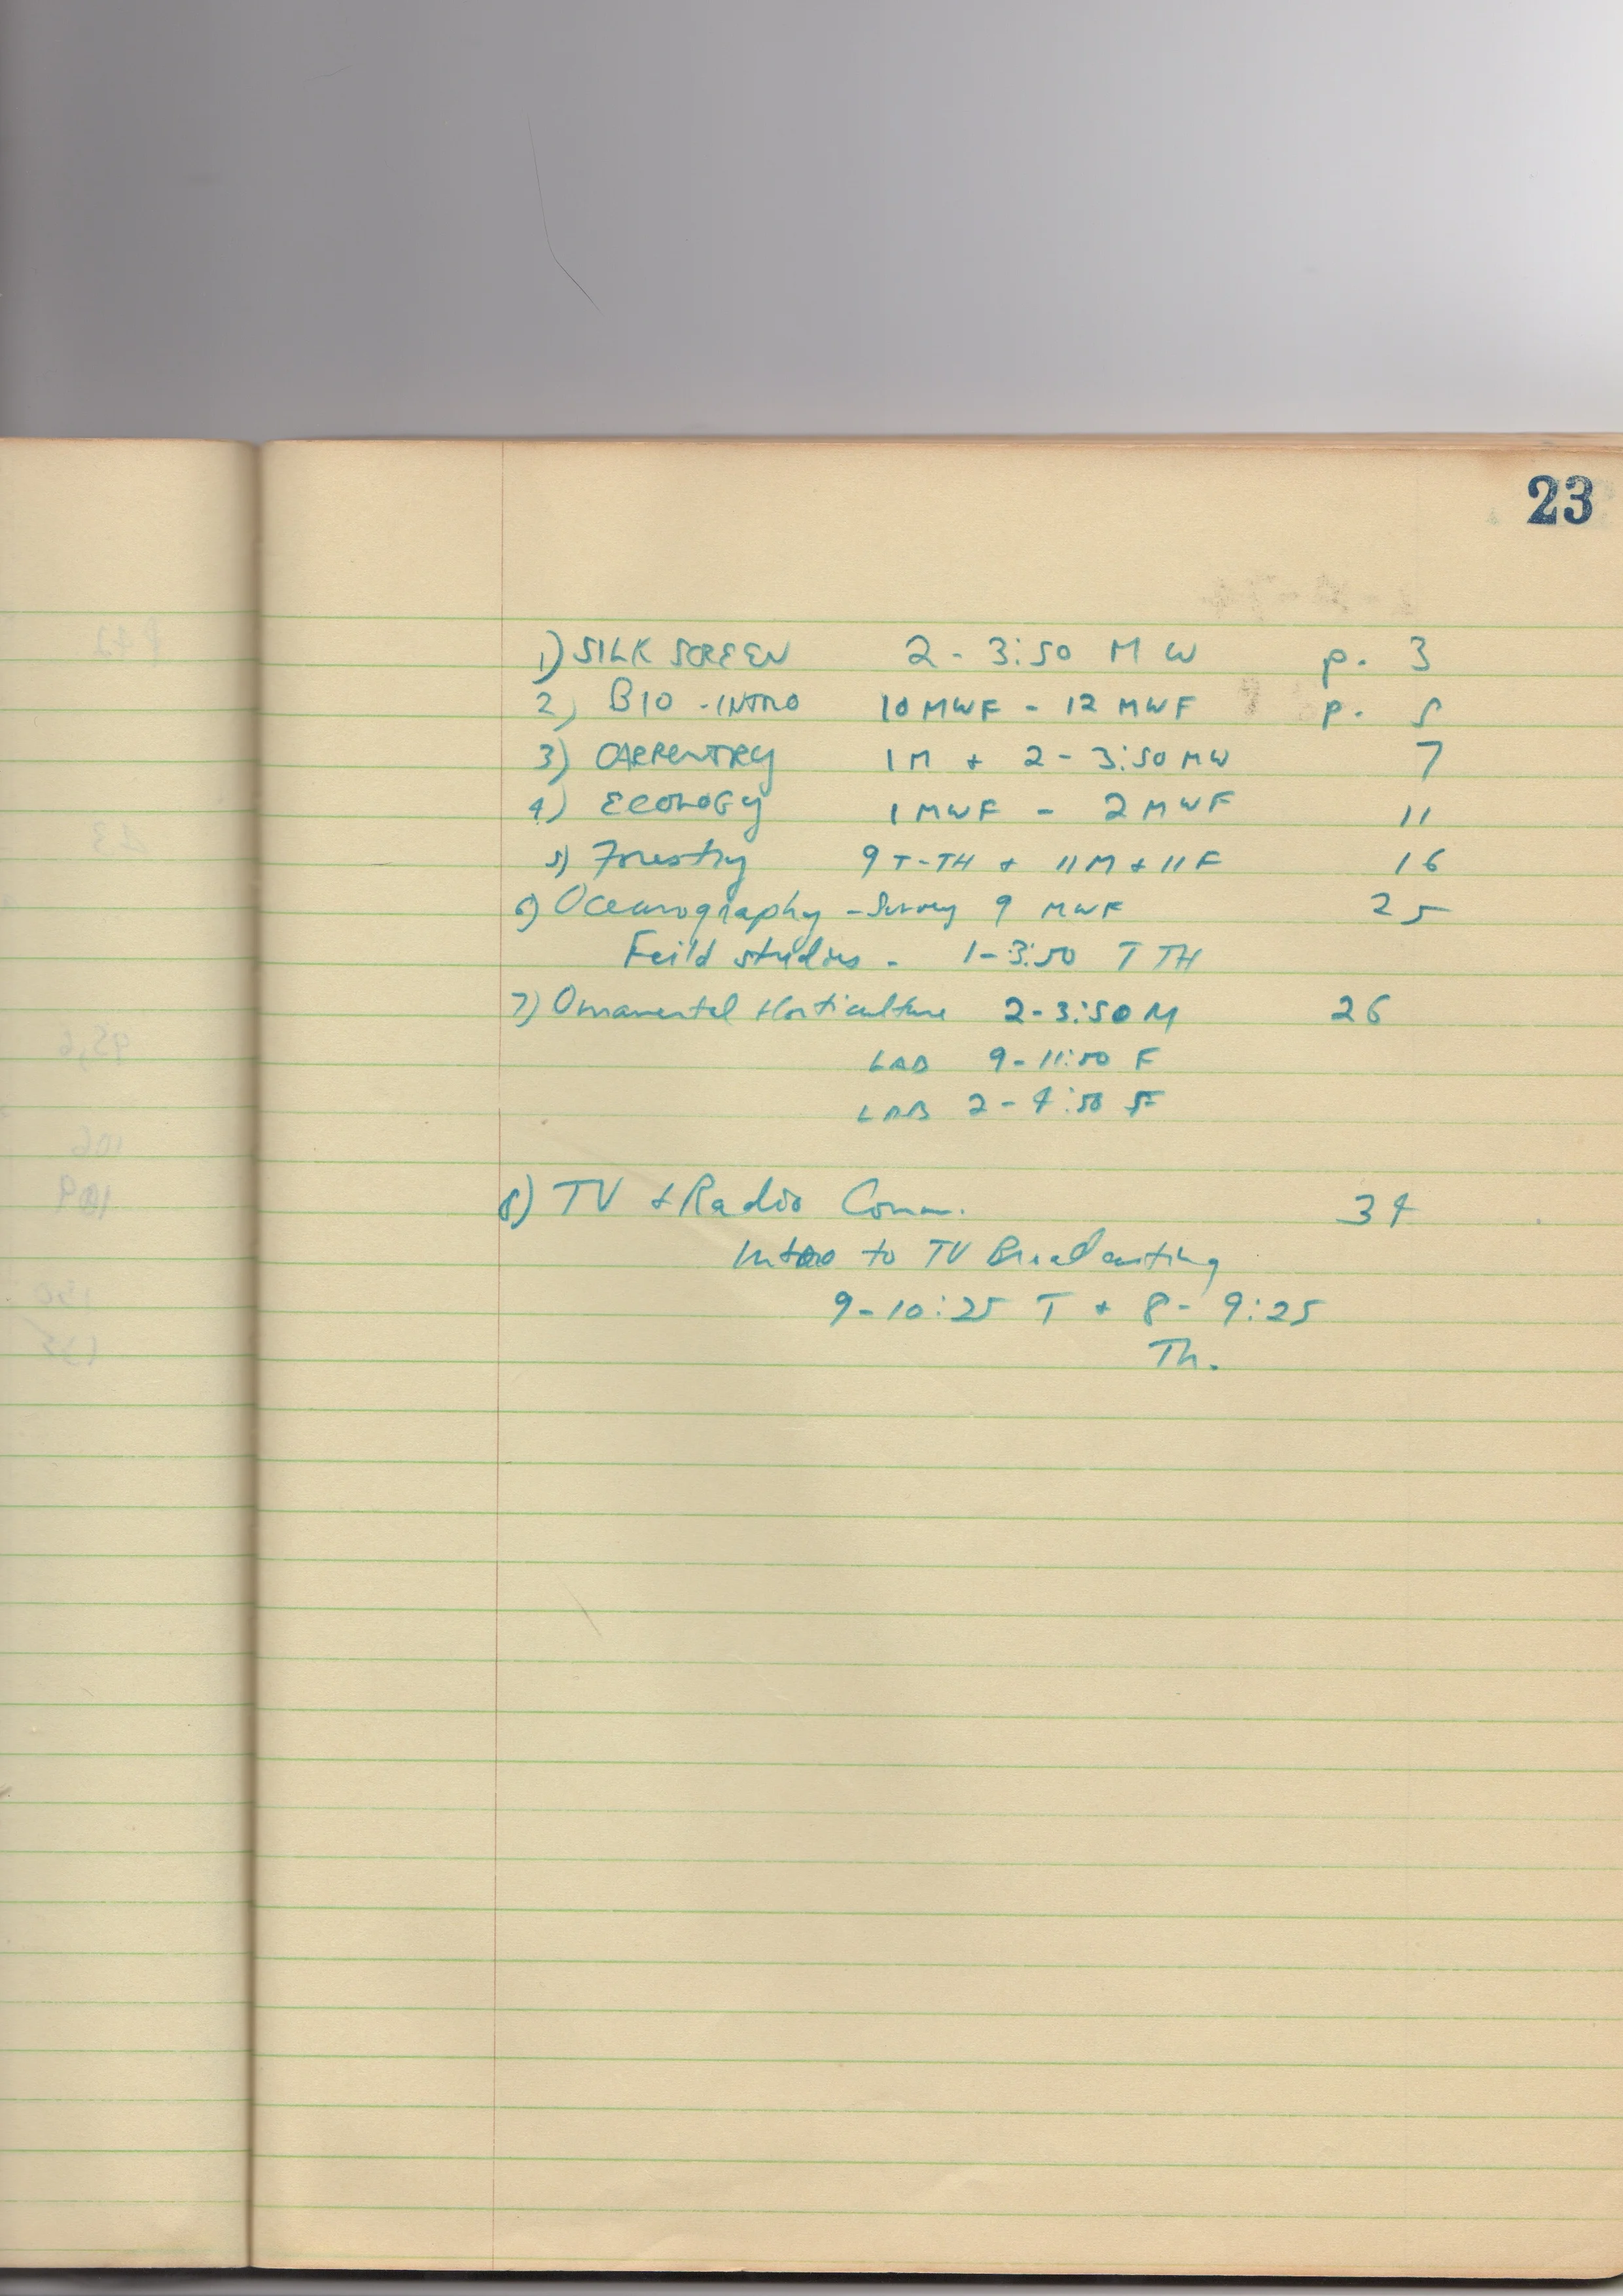 23
1) SILK SCREEN 2 - 3:50 M W p. 3
2) BIO - INTRO 10 MWF - 12 MWF p. 5
3) CARPENTRY 1 M + 2 - 3:50 MW 7
4) ECOLOGY 1 MWF - 2 MWF 11
5) Forestry 9 T-TH + 11 M + 11 F 16
6) Oceanography - Survey 9 MWF 25
Feild studies - 1-3:50 T TH
7) Ornamental Horticulture 2-3:50 M 26
LAB 9-11:50 F
LAB 2-4:50 F
8) TV + Radio Comm. 34
Intro to TV Broadcasting
9-10:25 T + 8- 9:25
Th.